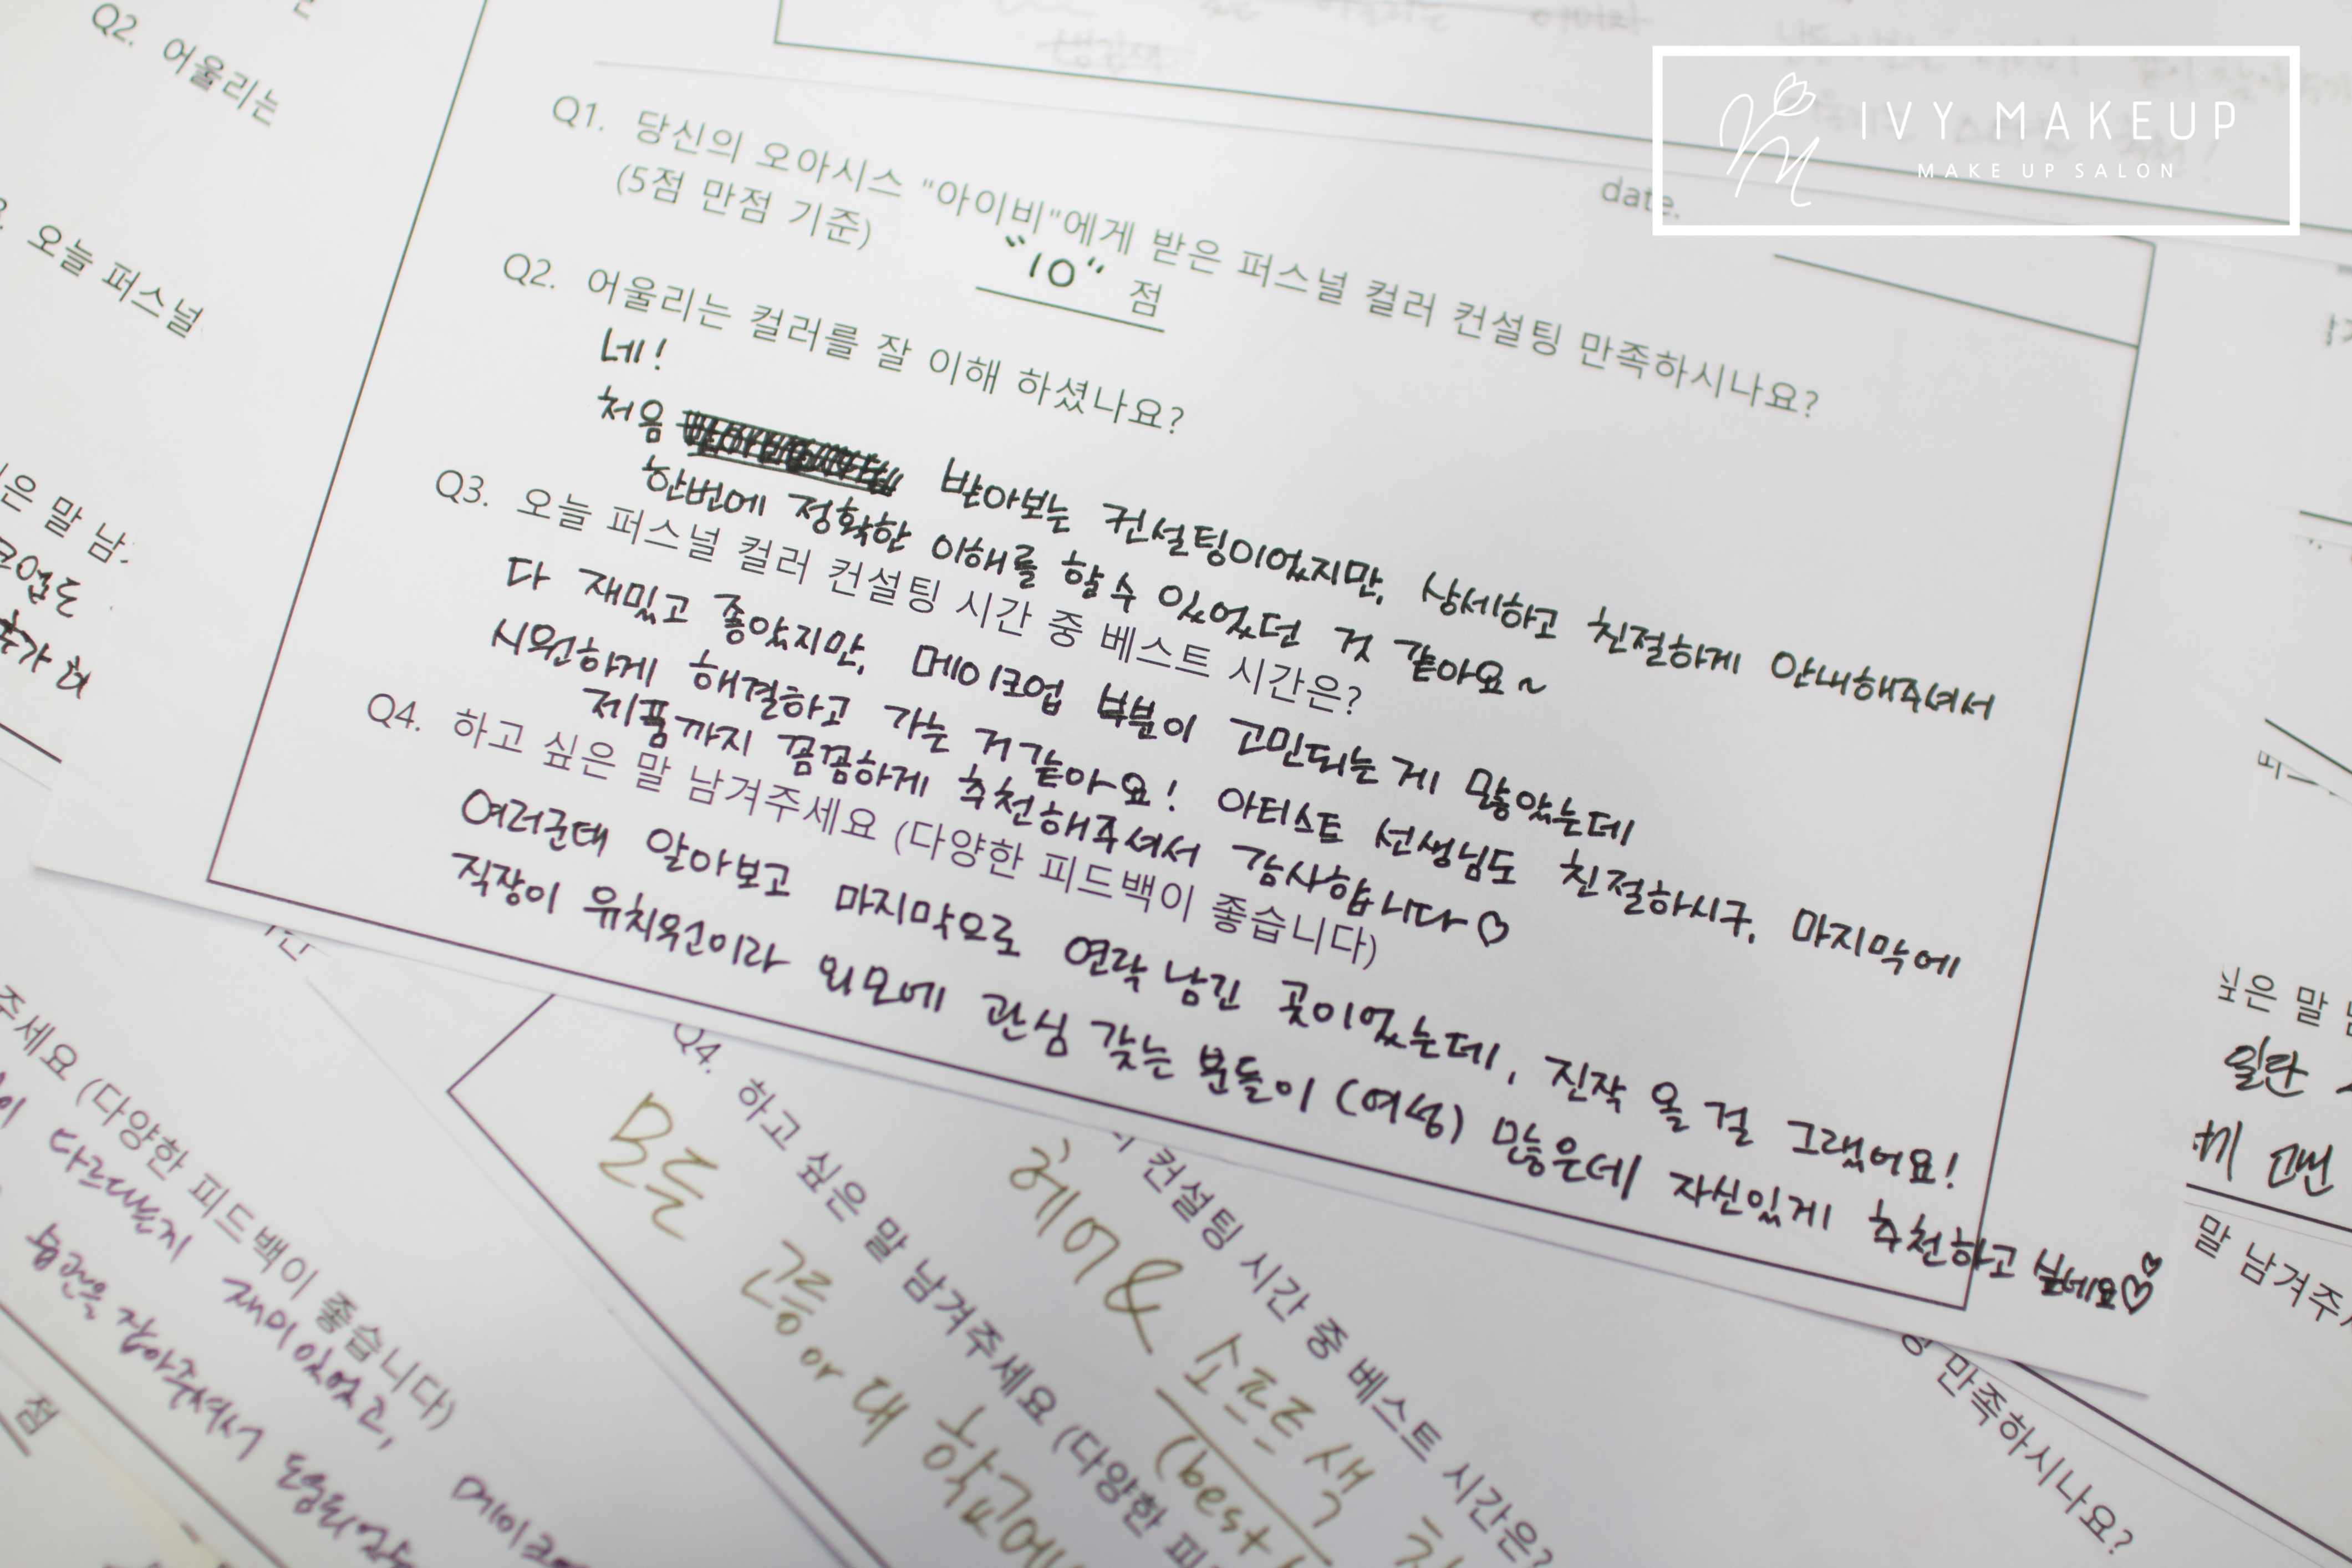 IVY MAKEUP
MAKE UP SALON
date.
Q1. 당신의 오아시스 "아이비"에게 받은 퍼스널 컬러 컨설팅 만족하시나요?
(5점 만점 기준)
"10" 점
Q2. 어울리는 컬러를 잘 이해 하셨나요?
네!
처음 받아보는 컨설팅이었지만, 상세하고 친절하게 안내해주셔서
한번에 정확한 이해를 할 수 있었던 것 같아요~
Q3. 오늘 퍼스널 컬러 컨설팅 시간 중 베스트 시간은?
다 재밌고 좋았지만, 메이크업 부분이 고민되는 게 많았는데
시원하게 해결하고 가는 거 같아요! 아티스트 선생님도 친절하시구, 마지막에
제품까지 꼼꼼하게 추천해주셔서 감사합니다♡
Q4. 하고 싶은 말 남겨주세요 (다양한 피드백이 좋습니다)
여러군데 알아보고 마지막으로 연락 남긴 곳이었는데, 진작 올 걸 그랬어요!
직장이 유치원이라 외모에 관심 갖는 분들이 (여성) 많은데 자신있게 추천하고 싶네요♡♡
Q2. 어울리는
오늘 퍼스널
은 말 남
주세요 (다양한 피드백이 좋습니다)
다르다는지 재미있었고, 메이크
습관을 잡아주셔서 도움되었
점
컨설팅 시간 중 베스트 시간은?
헤어 & 소프트 색
(best
Q4. 하고 싶은 말 남겨주세요 (다양한 피
모든 고등 or 대 학교에
싶은 말
말 남겨주
만족하시나요?